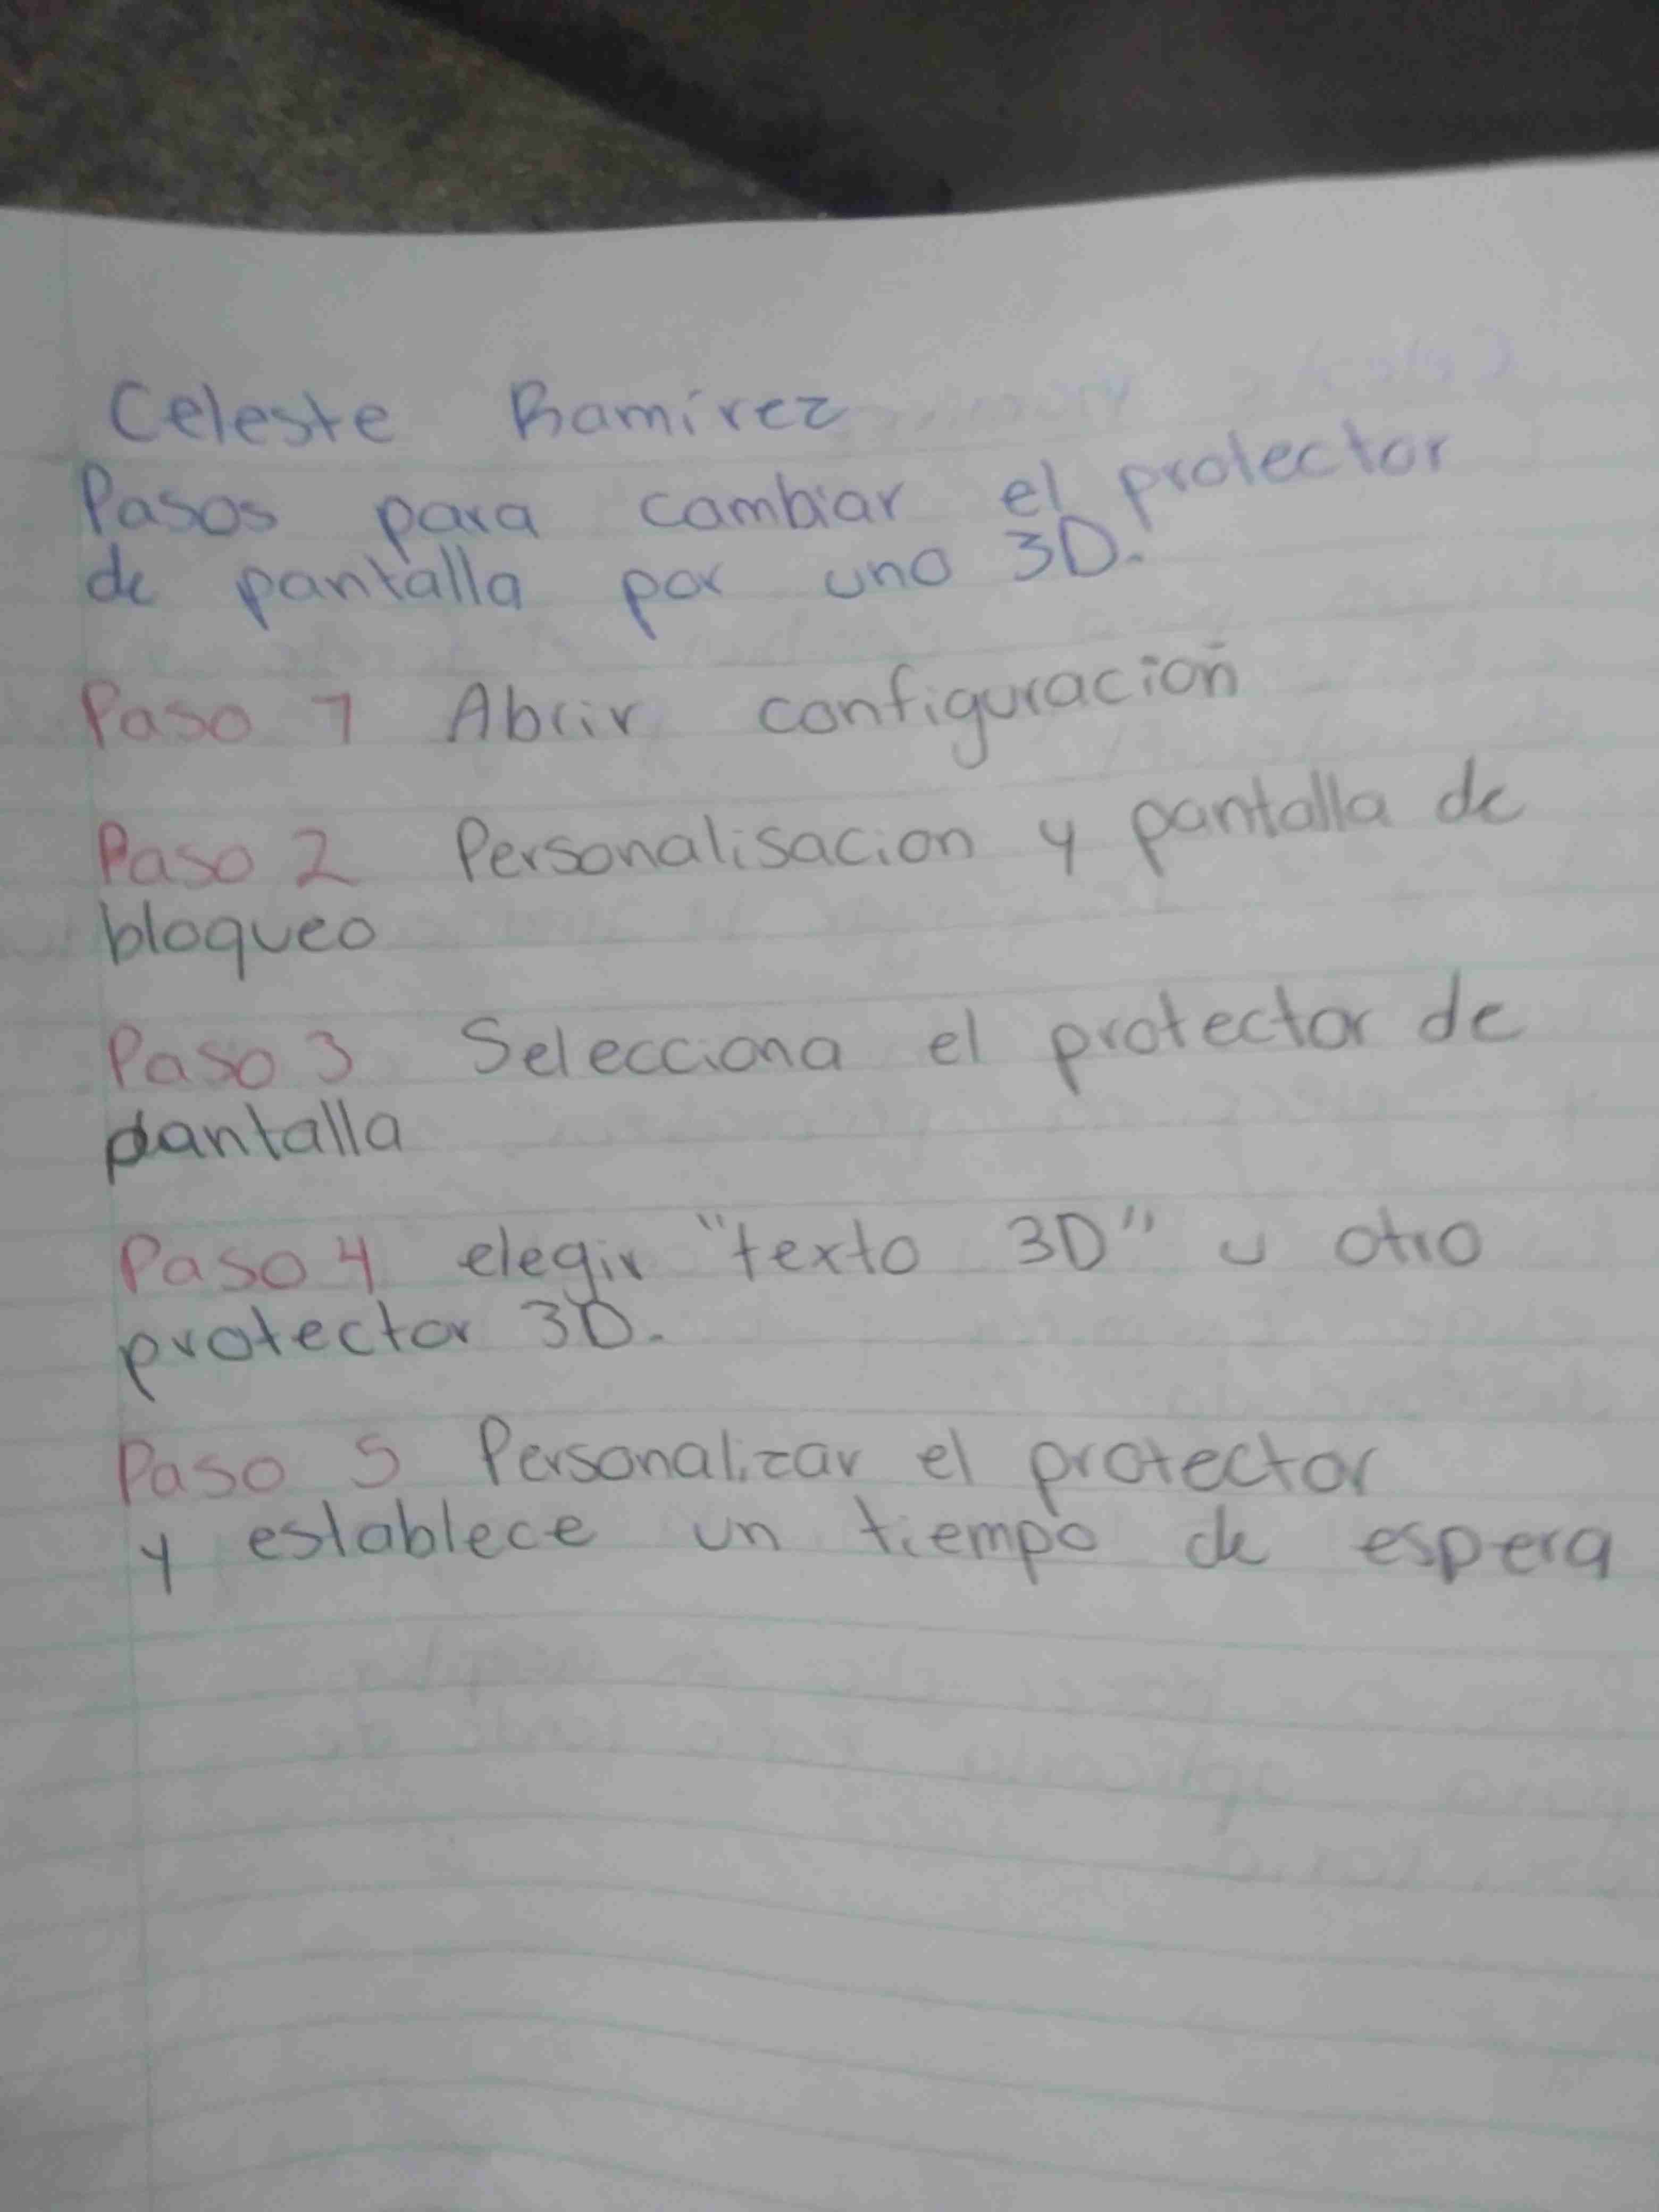 Celeste Ramírez
Pasos para cambiar el protector
de pantalla por uno 3D.
Paso 1 Abrir configuración
Paso 2 Personalisacion y pantalla de
bloqueo
Paso 3 Selecciona el protector de
pantalla
Paso 4 elegir "texto 3D" u otro
protector 3D.
Paso 5 Personalizar el protector
y establece un tiempo de espera